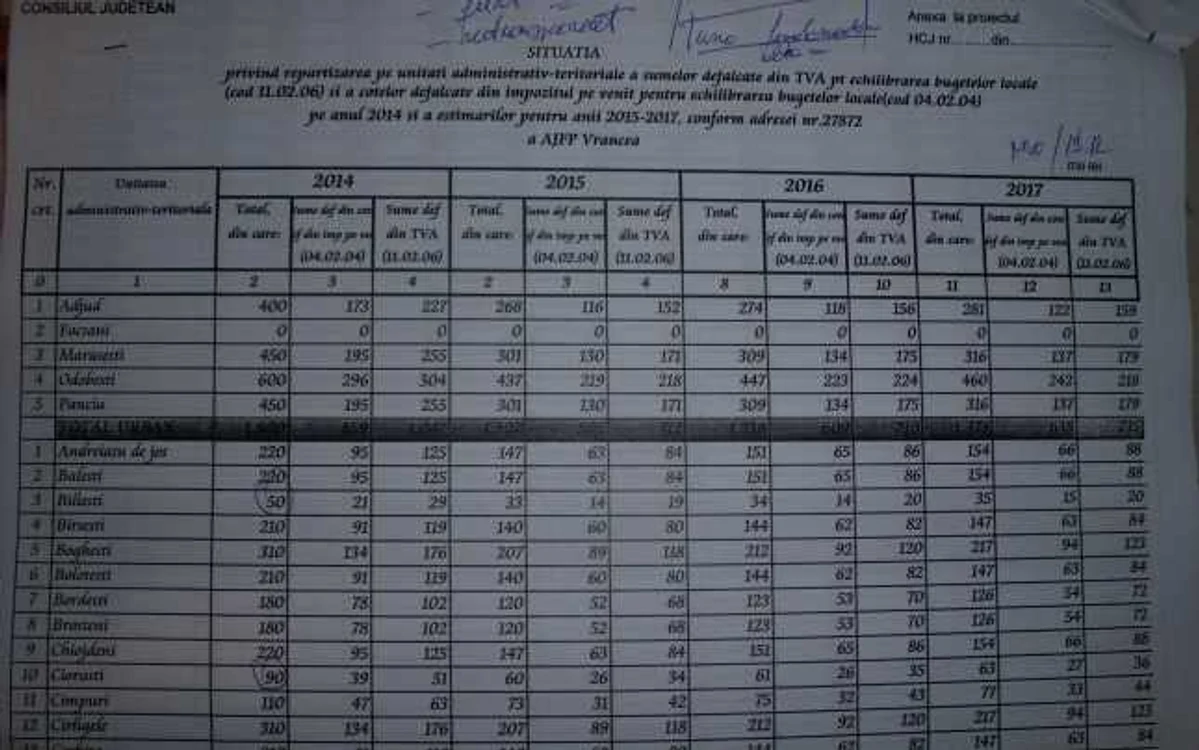 CONSILIUL JUDETEAN
Anexa la proiectul
HCJ nr. din
SITUATIA
privind repartizarea pe unitati administrativ-teritoriale a sumelor defalcate din TVA pt echilibrarea bugetelor locale
(cod 11.02.06) si a cotelor defalcate din impozitul pe venit pentru echilibrarea bugetelor locale(cod 04.02.04)
pe anul 2014 si a estimarilor pentru anii 2015-2017, conform adresei nr.27872
a AJFP Vrancea
mii lei
Nr. Unitatea 2014 2015 2016 2017
crt. administrativ-teritoriala Total, Sume def Total, Sume def Total, Sume def Total, Sume def
din care: din TVA din care: din TVA din care: din TVA din care: din TVA
(04.02.04) (11.02.06) (04.02.04) (11.02.06) (04.02.04) (11.02.06) (04.02.04) (11.02.06)
0 1 2 3 4 2 3 4 8 9 10 11 12 13
1 Adjud 400 173 227 268 116 152 274 118 156 281 122 159
2 Focsani 0 0 0 0 0 0 0 0 0 0 0 0
3 Marasesti 450 195 255 301 130 171 309 134 175 316 137 179
4 Odobesti 600 296 304 437 219 218 447 223 224 460 242 218
5 Panciu 450 195 255 301 130 171 309 134 175 316 137 179
TOTAL URBAN
1 Andreiasu de jos 220 95 125 147 63 84 151 65 86 154 66 88
2 Balesti 220 95 125 147 63 84 151 65 86 154 66 88
3 Bilesti 50 21 29 33 14 19 34 14 20 35 15 20
4 Birsesti 210 91 119 140 60 80 144 62 82 147 63 84
5 Boghesti 310 134 176 207 89 118 212 92 120 217 94 123
6 Bolotesti 210 91 119 140 60 80 144 62 82 147 63 84
7 Bordesti 180 78 102 120 52 68 123 53 70 126 54 72
8 Brosteni 180 78 102 120 52 68 123 53 70 126 54 72
9 Chiojdeni 220 95 125 147 63 84 151 65 86 154 66 88
10 Ciorasti 90 39 51 60 26 34 61 26 35 63 27 36
11 Cimpuri 110 47 63 73 31 42 75 32 43 77 33 44
12 Cirligele 310 134 176 207 89 118 212 92 120 217 94 123
82 147 63 84